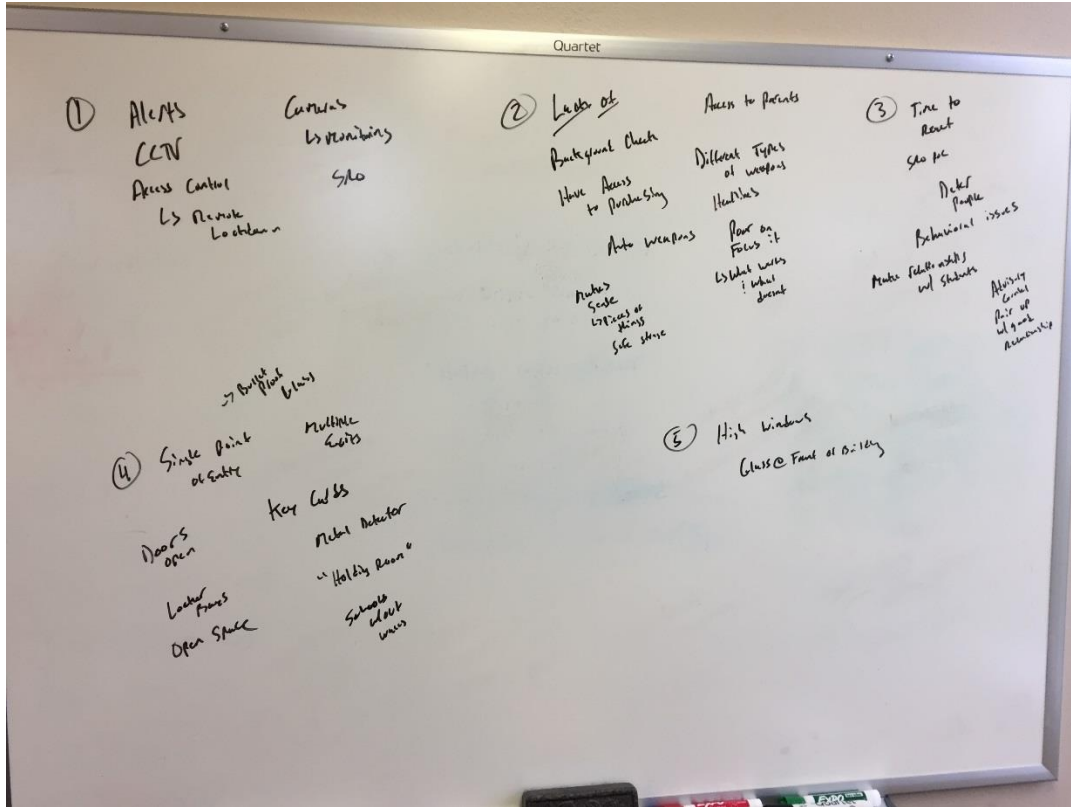 Quartet
① Alerts
CCTV
Access Control
↳ Remote
Lockdown
Cameras
↳ Monitoring
SRO
② Lack of
Background Check
Have Access
to purchasing
Auto weapons
Makes
Sense
↳ pieces of
things
Safe storage
Access to Parents
Different Types
of weapons
Headlines
Poor on
Focus it
↳ What works
! what
doesnt
③ Time to
React
SRO
Deter
People
Behavioral issues
Make relationships
w/ students
Advisory
Pair up
w/ good
Relationship
④ Single Point
of Entry
→ Bullet
Proof
Glass
Multiple
Exits
Doors
open
Key Cards
Metal Detector
"Holding Room"
Locker
Open Space
Schools
w/out
walls
⑤ High windows
Glass @ Front of Building
EXPO
EXPO